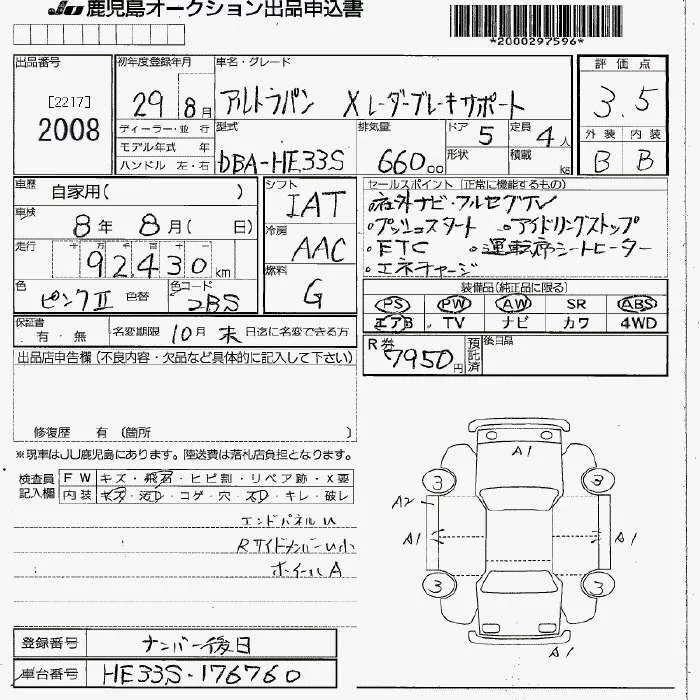 JU 鹿児島オークション出品申込書
*2000297596*
出品番号
[2217]
2008
初年度登録年月
29 8月
車名・グレード
アルトラパン Xレーダーブレーキサポート
評価点
3.5
外装 内装
B B
ディーラー・並行
モデル年式 年
ハンドル 左・右
型式
DBA-HE33S
排気量
660cc
ドア
5
定員
4人
形状
積載
kg
車歴
自家用( )
車検
8年 8月( 日)
走行
十万千百十
92430km
色
ピンクⅡ
色替
色コード
ZBS
シフト
IAT
冷房
AAC
燃料
G
セールスポイント (正常に機能するもの)
・社外ナビ・フルセグTV
・プッシュスタート ・アイドリングストップ
・ETC ・運転席シートヒーター
・エネチャージ
装備品(純正品に限る)
PS PW AW SR ABS
エアB TV ナビ カワ 4WD
保証書
有・無
名変期限 10月 末 日迄に名変できる方
R券
7950円
預託済
後日品
出品店申告欄 (不良内容・欠品など具体的に記入して下さい)
修復歴 有 (箇所 )
※現車はJU鹿児島にあります。陸送費は落札店負担となります。
検査員記入欄
FW キズ・飛石・ヒビ割・リペア跡・X要
内装 キズ・汚レ・コゲ・穴・スレ・キレ・破レ
エンドパネルU
RサイドメンバーU小
ホイールA
A1
3 3
A2
A1 A1
3 3
A1
登録番号 ナンバー後日
車台番号 HE33S-176760